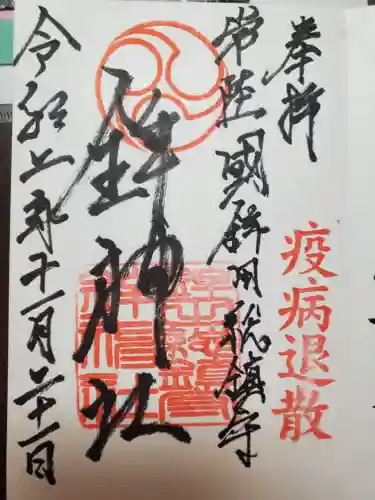 奉拝
疫病退散
常陸國鉾田総鎮守
鉾神社
令和二年十一月二十一日